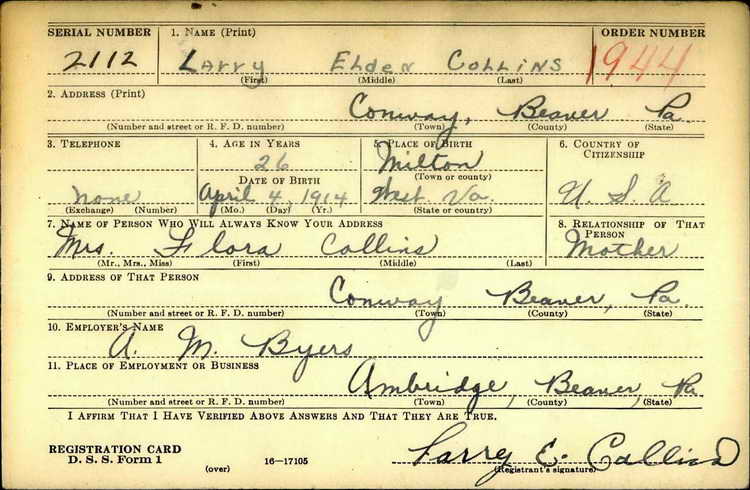 SERIAL NUMBER 1. NAME (Print) ORDER NUMBER
2112 Larry Elden Collins 1944
(First) (Middle) (Last)
2. ADDRESS (Print)
Conway, Beaver Pa.
(Number and street or R. F. D. number) (Town) (County) (State)
3. TELEPHONE 4. AGE IN YEARS 5. PLACE OF BIRTH 6. COUNTRY OF CITIZENSHIP
26 Milton
(Town or county)
DATE OF BIRTH
None April 4, 1914 West. Va. U. S. A
(Exchange) (Number) (Mo.) (Day) (Yr.) (State or country)
7. NAME OF PERSON WHO WILL ALWAYS KNOW YOUR ADDRESS 8. RELATIONSHIP OF THAT PERSON
Mrs. Flora Collins Mother
(Mr., Mrs., Miss) (First) (Middle) (Last)
9. ADDRESS OF THAT PERSON
Conway Beaver, Pa.
(Number and street or R. F. D. number) (Town) (County) (State)
10. EMPLOYER'S NAME
A. M. Byers
11. PLACE OF EMPLOYMENT OR BUSINESS
Ambridge, Beaver, Pa
(Number and street or R. F. D. number) (Town) (County) (State)
I AFFIRM THAT I HAVE VERIFIED ABOVE ANSWERS AND THAT THEY ARE TRUE.
REGISTRATION CARD
D. S. S. Form 1 (over) 16-17105 Larry E. Collins
(Registrant's signature)